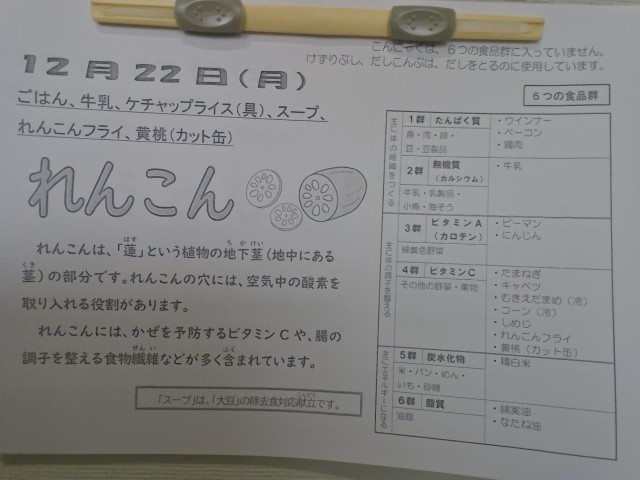 こんにゃくは、6つの食品群に入っていません。
けずりぶし、だしこんぶは、だしをとるのに使用しています。
12月22日(月)
ごはん、牛乳、ケチャップライス(具)、スープ、
れんこんフライ、黄桃(カット缶)
れんこん
れんこんは、「蓮」という植物の地下茎(地中にある
茎)の部分です。れんこんの穴には、空気中の酸素を
取り入れる役割があります。
れんこんには、かぜを予防するビタミンCや、腸の
調子を整える食物繊維などが多く含まれています。
「スープ」は、「大豆」の除去食対応献立です。
6つの食品群
主に体の組織をつくる
1群 たんぱく質
魚・肉・卵・
豆・豆製品
・ウインナー
・ベーコン
・鶏肉
2群 無機質
(カルシウム)
牛乳・乳製品・
小魚・海そう
・牛乳
主に体の調子を整える
3群 ビタミンA
(カロテン)
緑黄色野菜
・ピーマン
・にんじん
4群 ビタミンC
その他の野菜・果物
・たまねぎ
・キャベツ
・むきえだまめ(冷)
・コーン(冷)
・しめじ
・れんこんフライ
・黄桃(カット缶)
主にエネルギーになる
5群 炭水化物
米・パン・めん・
いも・砂糖
・精白米
6群 脂質
油脂
・綿実油
・なたね油